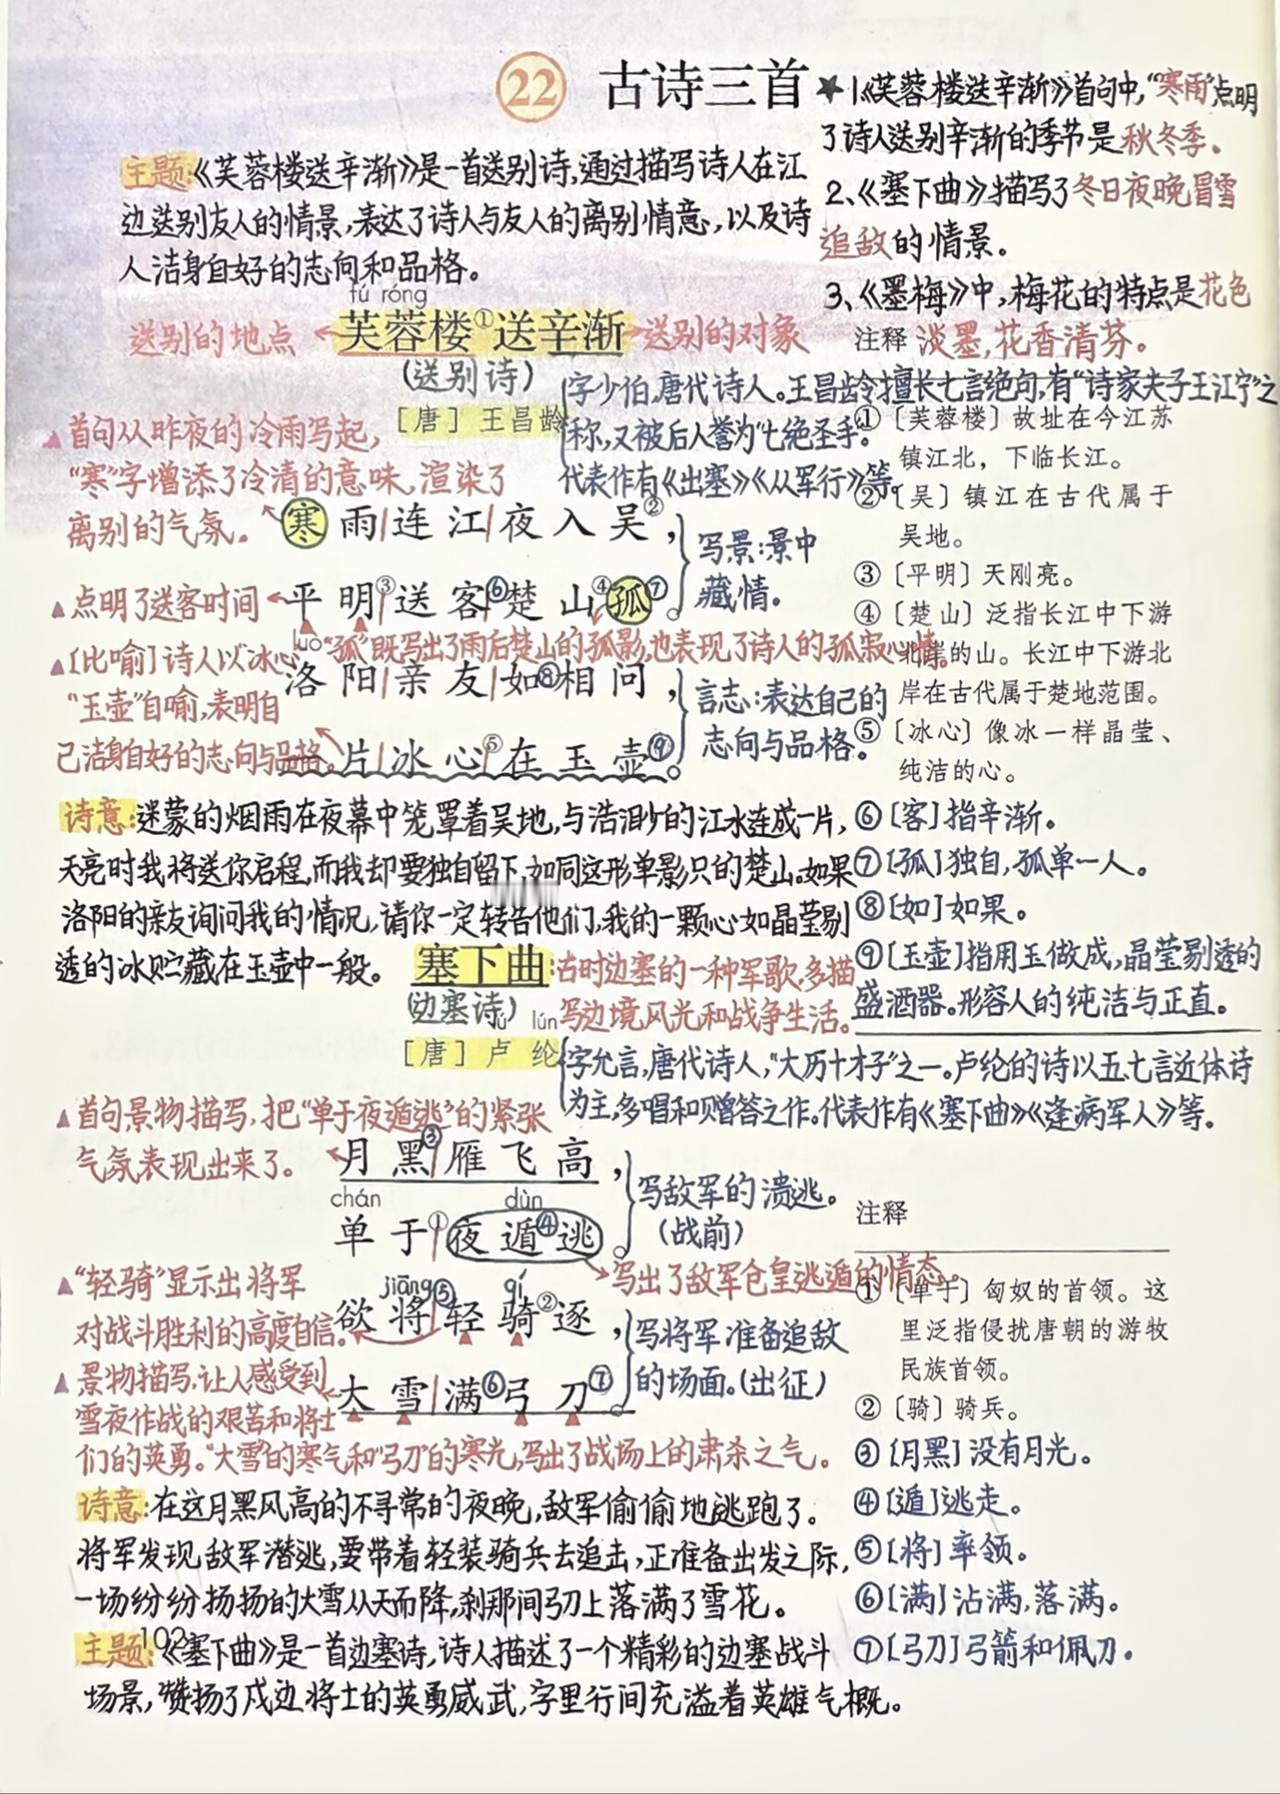 22 古诗三首
★1《芙蓉楼送辛渐》首句中,“寒雨”点明
了诗人送别辛渐的季节是秋冬季。
2、《塞下曲》描写了冬日夜晚冒雪
追敌的情景。
3、《墨梅》中,梅花的特点是花色
淡墨,花香清芬。
主题:《芙蓉楼送辛渐》是一首送别诗,通过描写诗人在江
边送别友人的情景,表达了诗人与友人的离别情意,以及诗
人洁身自好的志向和品格。
fú róng
送别的地点 芙蓉楼①送辛渐 送别的对象
(送别诗)
[唐] 王昌龄
字少伯,唐代诗人。王昌龄擅长七言绝句,有“诗家夫子王江宁”之
称,又被后人誉为“七绝圣手”。
代表作有《出塞》《从军行》等。
首句从昨夜的冷雨写起,
“寒”字增添了冷清的意味,渲染了
离别的气氛。
寒雨连江夜入吴②,
写景:景中
藏情。
点明了送客时间
平明③送客⑥楚山④孤⑦。
“孤”既写出了雨后楚山的孤影,也表现了诗人的孤寂心情。
luò
洛阳亲友如⑧相问,
[比喻]诗人以“冰心
“玉壶”自喻,表明自
己洁身自好的志向与品格。
片冰心⑤在玉壶⑨。
言志:表达自己的
志向与品格。
注释
①〔芙蓉楼〕故址在今江苏
镇江北，下临长江。
②〔吴〕镇江在古代属于
吴地。
③〔平明〕天刚亮。
④〔楚山〕泛指长江中下游
北岸的山。长江中下游北
岸在古代属于楚地范围。
⑤〔冰心〕像冰一样晶莹、
纯洁的心。
⑥[客]指辛渐。
⑦[孤]独自,孤单一人。
⑧[如]如果。
⑨[玉壶]指用玉做成,晶莹剔透的
盛酒器。形容人的纯洁与正直。
诗意:迷蒙的烟雨在夜幕中笼罩着吴地,与浩渺的江水连成一片,
天亮时我将送你启程,而我却要独自留下,如同这形单影只的楚山。如果
洛阳的亲友询问我的情况,请你一定转告他们,我的一颗心如晶莹剔
透的冰贮藏在玉壶中一般。
塞下曲:古时边塞的一种军歌,多描
写边境风光和战争生活。
(边塞诗)
lún
[唐] 卢纶
字允言,唐代诗人,“大历十才子”之一。卢纶的诗以五七言近体诗
为主,多唱和赠答之作。代表作有《塞下曲》《逢病军人》等。
首句景物描写,把“单于夜遁逃”的紧张
气氛表现出来了。
月黑③雁飞高,
chán dùn
单于①夜遁④逃。
写敌军的溃逃。
(战前)
写出了敌军仓皇逃遁的情态。
“轻骑”显示出将军
对战斗胜利的高度自信。
jiāng qí
欲将⑤轻骑②逐,
景物描写,让人感受到
雪夜作战的艰苦和将士
们的英勇。“大雪”的寒气和“弓刀”的寒光,写出了战场上的肃杀之气。
大雪满⑥弓刀⑦。
写将军准备追敌
的场面。(出征)
注释
①〔单于〕匈奴的首领。这
里泛指侵扰唐朝的游牧
民族首领。
②〔骑〕骑兵。
③[月黑]没有月光。
④[遁]逃走。
⑤[将]率领。
⑥[满]沾满,落满。
⑦[弓刀]弓箭和佩刀。
诗意:在这月黑风高的不寻常的夜晚,敌军偷偷地逃跑了。
将军发现敌军潜逃,要带着轻装骑兵去追击,正准备出发之际,
一场纷纷扬扬的大雪从天而降,刹那间弓刀上落满了雪花。
102
主题:《塞下曲》是一首边塞诗,诗人描述了一个精彩的边塞战斗
场景,赞扬了戍边将士的英勇威武,字里行间充溢着英雄气概。